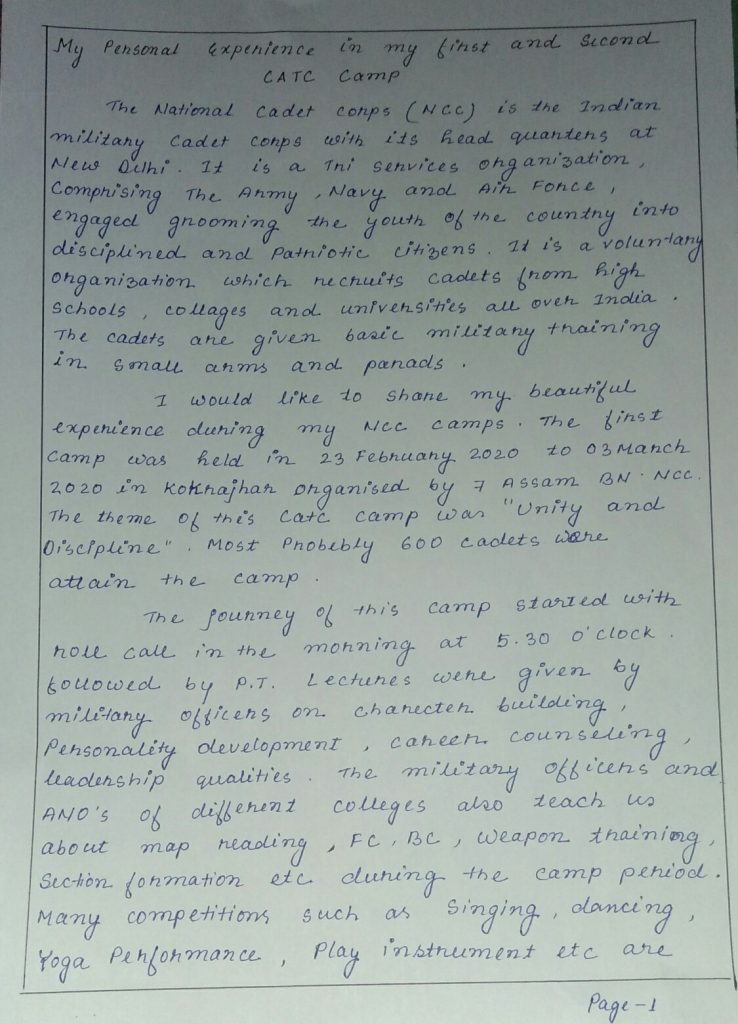 My Personal Experience in my first and Second
CATC Camp
The National Cadet corps (NCC) is the Indian
military cadet corps with its head quarters at
New Delhi. It is a Tri services organization,
Comprising The Army, Navy and Air Force,
engaged grooming the youth of the country into
disciplined and Patriotic citizens. It is a voluntary
organization which recruits cadets from high
schools, collages and universities all over India.
The cadets are given basic military training
in small arms and parads.
I would like to share my beautiful
experience during my NCC camps. The first
camp was held in 23 February 2020 to 03 March
2020 in Kokrajhar organised by 7 Assam BN. NCC.
The theme of this Catc camp was "Unity and
Discipline". Most Probebly 600 cadets were
attain the camp.
The journey of this camp started with
roll call in the morning at 5.30 o'clock.
followed by P.T. Lectures were given by
military officers on charecter building,
Personality development, career counseling,
leadership qualities. The military officers and
ANO's of different colleges also teach us
about map reading, FC, BC, weapon training,
Section formation etc during the camp period.
Many competitions such as singing, dancing,
Yoga Performance, Play instrument etc are
Page-1